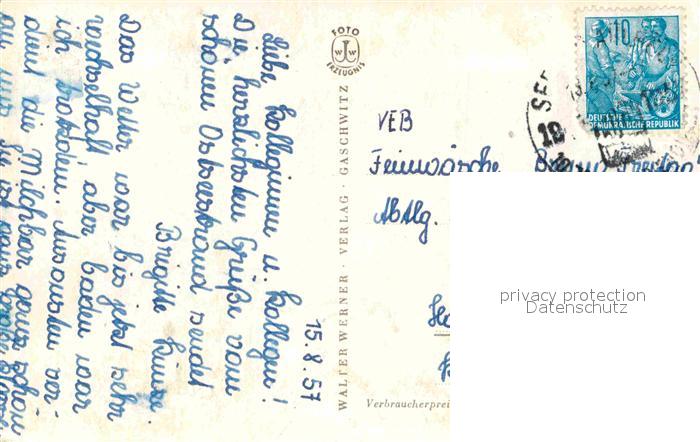 15.8.57
Liebe Kolleginnen u. Kollegen!
Die herzlichsten Grüße vom
schönen Ostseestrand sendet
Brigitte
Das Wetter war bis jetzt sehr
wechselhaft aber baden war
ich trotzdem. Ansonsten ver-
dient die Milchbar ganz schön
an uns
FOTO
ERZEUGNIS
WALTER WERNER · VERLAG · GASCHWITZ
Verbraucherprei
10
DEUTSCHE
DEMOKRATISCHE REPUBLIK
VEB
Feinwäsche
Abtlg.
privacy protection
Datenschutz